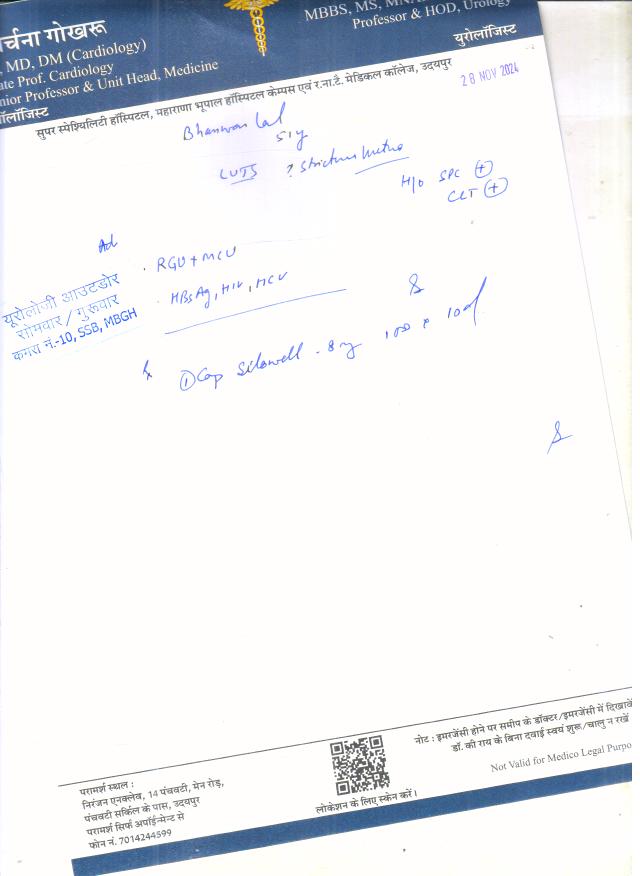 र्चना गोखरू
MBBS, MS, MNA
, MD, DM (Cardiology)
Professor & HOD, Urology
ate Prof. Cardiology
यूरोलॉजिस्ट
nior Professor & Unit Head, Medicine
ॉलॉजिस्ट
सुपर स्पेश्यिलिटी हॉस्पिटल, महाराणा भूपाल हॉस्पिटल केम्पस एवं र.ना.टै. मेडिकल कॉलेज, उदयपुर
28 NOV 2024
Bhanwar Lal
51y
LUTS ? Stricture urethra
H/o SPC (+)
CLT (+)
Ad
. RGU + MCU
. HBsAg, HIV, HCV
यूरोलोजी आउटडोर
सोमवार / गुरूवार
कमरा नं.-10, SSB, MBGH
① Cap Silowell - 8 mg 1OD x 10d
नोट : इमरजेंसी होने पर समीप के डॉक्टर/इमरजेंसी में दिखावें
डॉ. की राय के बिना दवाई स्वयं शुरू/चालु न रखें
Not Valid for Medico Legal Purpo
परामर्श स्थल :
निरंजन एनक्लेव, 14 पंचवटी, मेन रोड़,
पंचवटी सर्किल के पास, उदयपुर
परामर्श सिर्फ अपॉईन्मेन्ट से
फोन नं. 7014244599
लोकेशन के लिए स्केन करें।